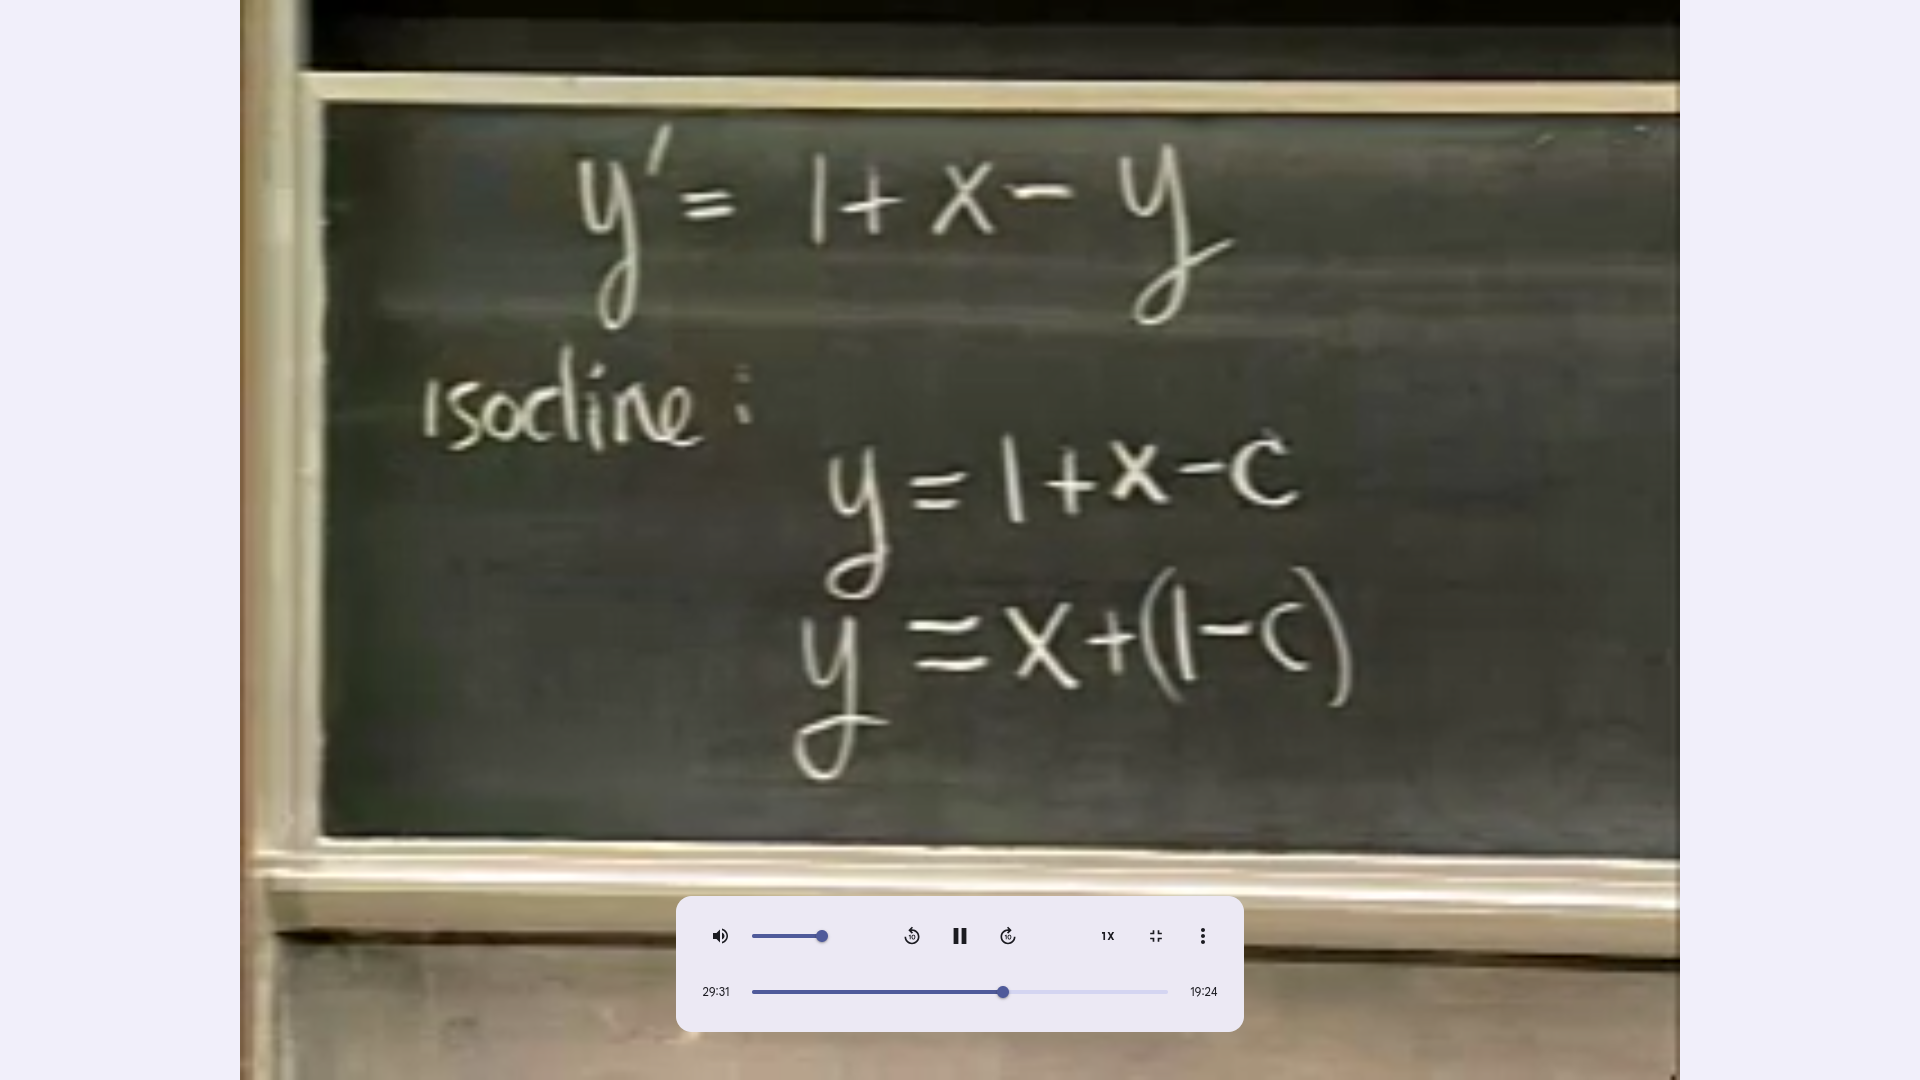 y' = 1 + x - y
isocline :
y = 1 + x - c
y = x + (1 - c)
10
10
1X
29:31
19:24